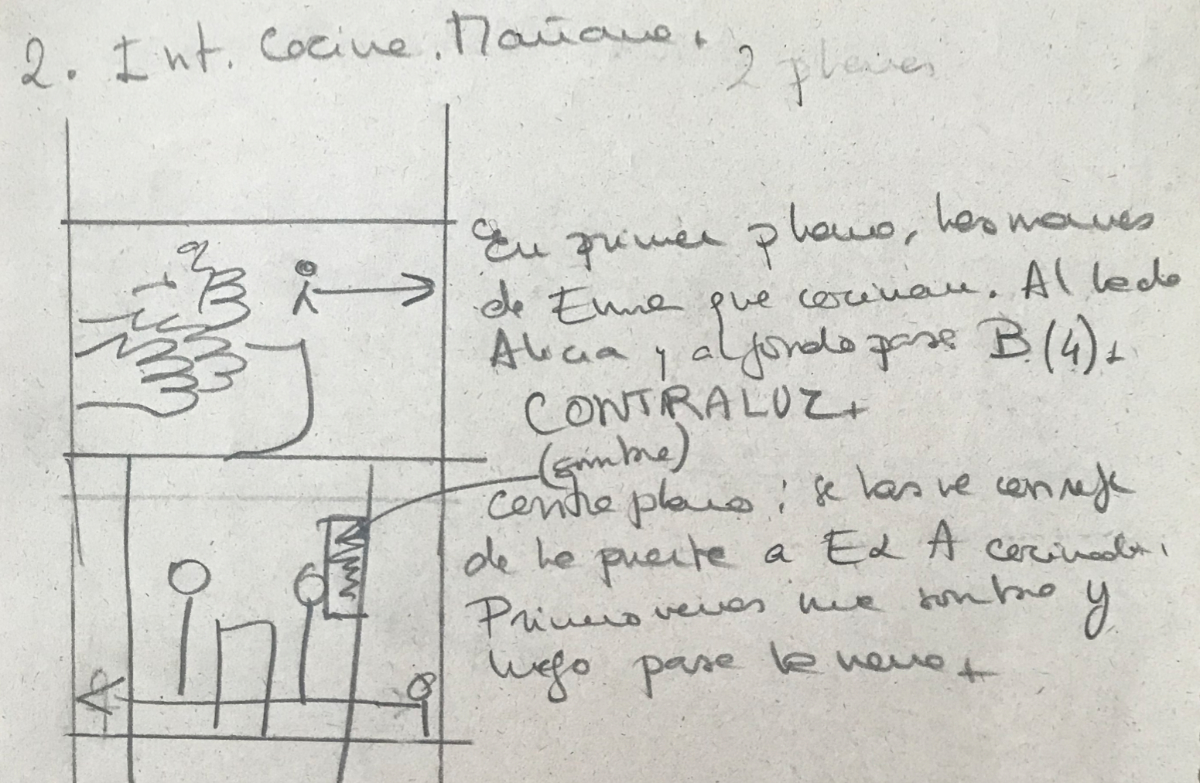 2. Int. Cocina. Mañana.
2 planos
En primer plano, las manos
de Emma que cocinan. Al lado
Alicia y al fondo pasa B (4).
CONTRALUZ.
(sombra)
contraplano: se las ve
de la puerta a E & A cocinando.
Primero vemos una sombra y
luego pasa la nena.